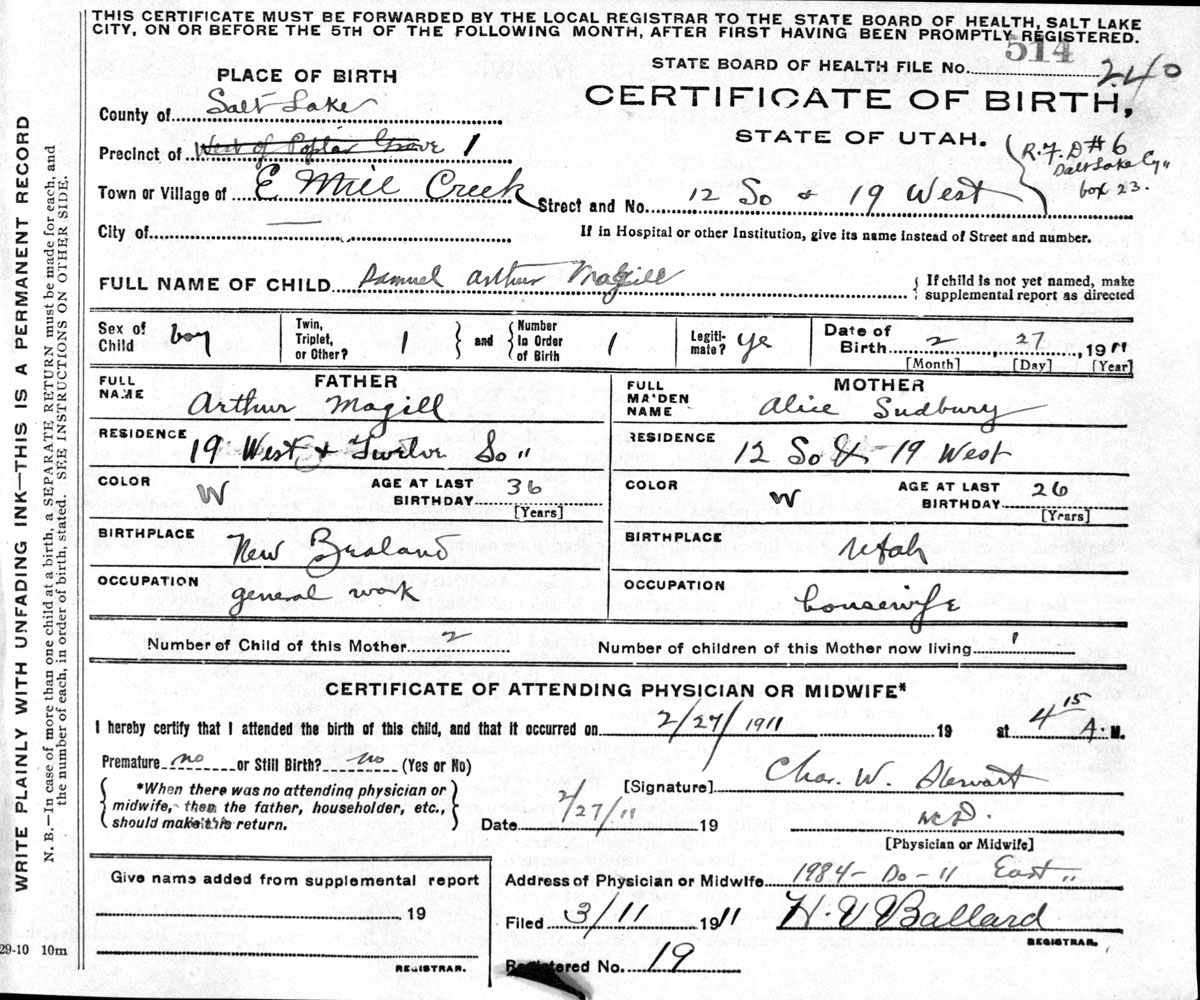 THIS CERTIFICATE MUST BE FORWARDED BY THE LOCAL REGISTRAR TO THE STATE BOARD OF HEALTH, SALT LAKE
CITY, ON OR BEFORE THE 5TH OF THE FOLLOWING MONTH, AFTER FIRST HAVING BEEN PROMPTLY REGISTERED.
514
STATE BOARD OF HEALTH FILE No. 240
PLACE OF BIRTH
CERTIFICATE OF BIRTH,
County of Salt Lake
STATE OF UTAH.
R.F.D #6
Salt Lake Cy"
box 23.
Precinct of West of Poplar Grove 1
Town or Village of E Mill Creek
Street and No. 12 So & 19 West
City of
If in Hospital or other Institution, give its name instead of Street and number.
FULL NAME OF CHILD Samuel Arthur Magill
If child is not yet named, make
supplemental report as directed
Sex of Child boy
Twin, Triplet, or Other? 1
and
Number In Order of Birth 1
Legitimate? Ye
Date of Birth 2, 27, 1911
[Month] [Day] [Year]
FATHER
FULL NAME Arthur Magill
RESIDENCE 19 West & Twelve So "
COLOR W
AGE AT LAST BIRTHDAY 36
[Years]
BIRTHPLACE New
OCCUPATION general work
MOTHER
FULL MAIDEN NAME Alice Sudbury
RESIDENCE 12 So & 19 West
COLOR W
AGE AT LAST BIRTHDAY 26
[Years]
BIRTHPLACE Utah
OCCUPATION housewife
Number of Child of this Mother 2
Number of children of this Mother now living 1
CERTIFICATE OF ATTENDING PHYSICIAN OR MIDWIFE*
I hereby certify that I attended the birth of this child, and that it occurred on 2/27/1911 19 at 4 15 A. M.
Premature no or Still Birth? no (Yes or No)
*When there was no attending physician or
midwife, then the father, householder, etc.,
should make this return.
[Signature] Chas. W. Stewart
Date 2/27/11 19
M.D.
[Physician or Midwife]
Give name added from supplemental report
19
REGISTRAR.
Address of Physician or Midwife 1984 - So - 11 East "
Filed 3/11 1911 H. V Ballard
REGISTRAR.
Registered No. 19
WRITE PLAINLY WITH UNFADING INK—THIS IS A PERMANENT RECORD
N. B.—In case of more than one child at a birth, a SEPARATE RETURN must be made for each, and
the number of each, in order of birth, stated. SEE INSTRUCTIONS ON OTHER SIDE.
29-10 10m